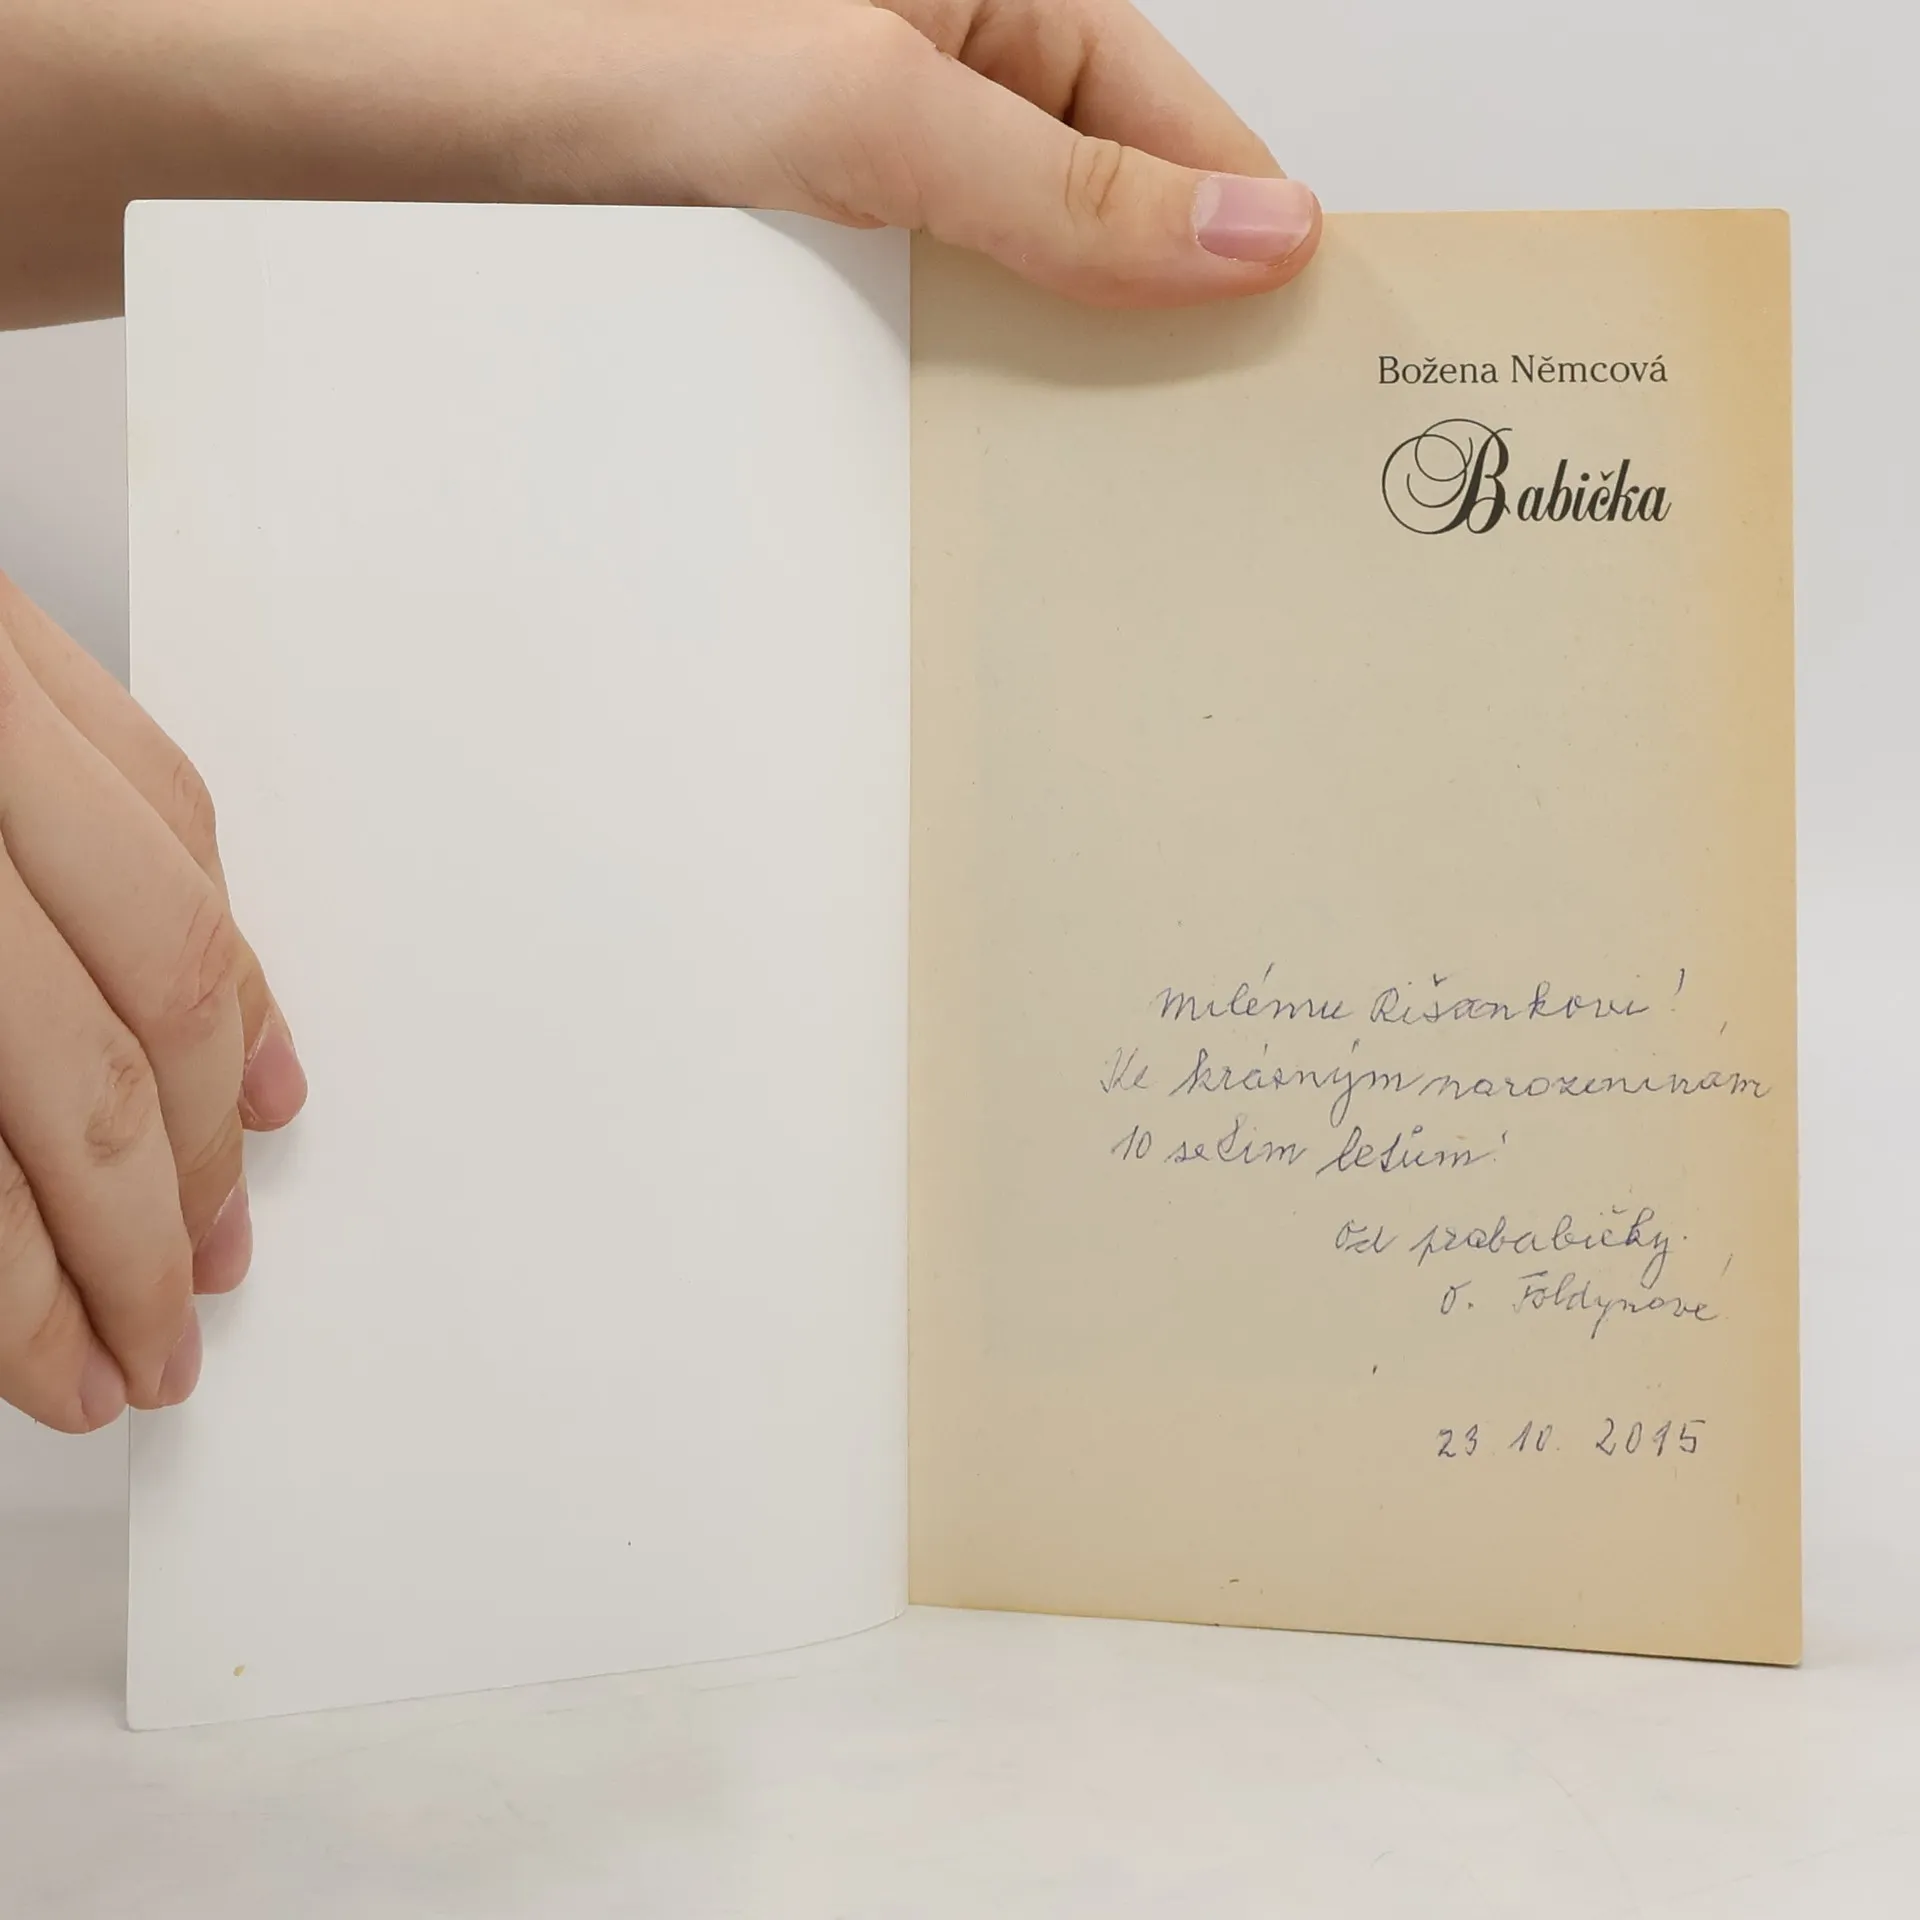 Božena Němcová
Babička
Milému Rišankovi!
Ke krásným narozeninám
10 setim letům!
Od prababičky.
O. Foldynové
23 10. 2015